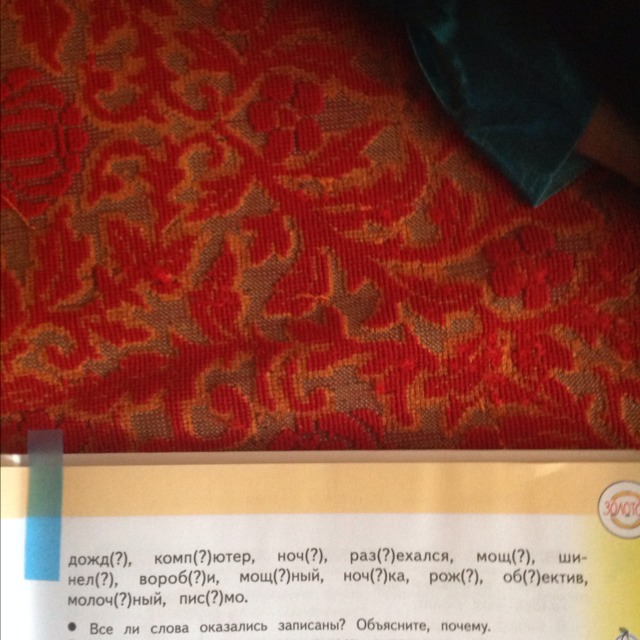 ЗОЛОТО
дожд(?), комп(?)ютер, ноч(?), раз(?)ехался, мощ(?), ши-
нел(?), вороб(?)и, мощ(?)ный, ноч(?)ка, рож(?), об(?)ектив,
молоч(?)ный, пис(?)мо.
• Все ли слова оказались записаны? Объясните, почему.